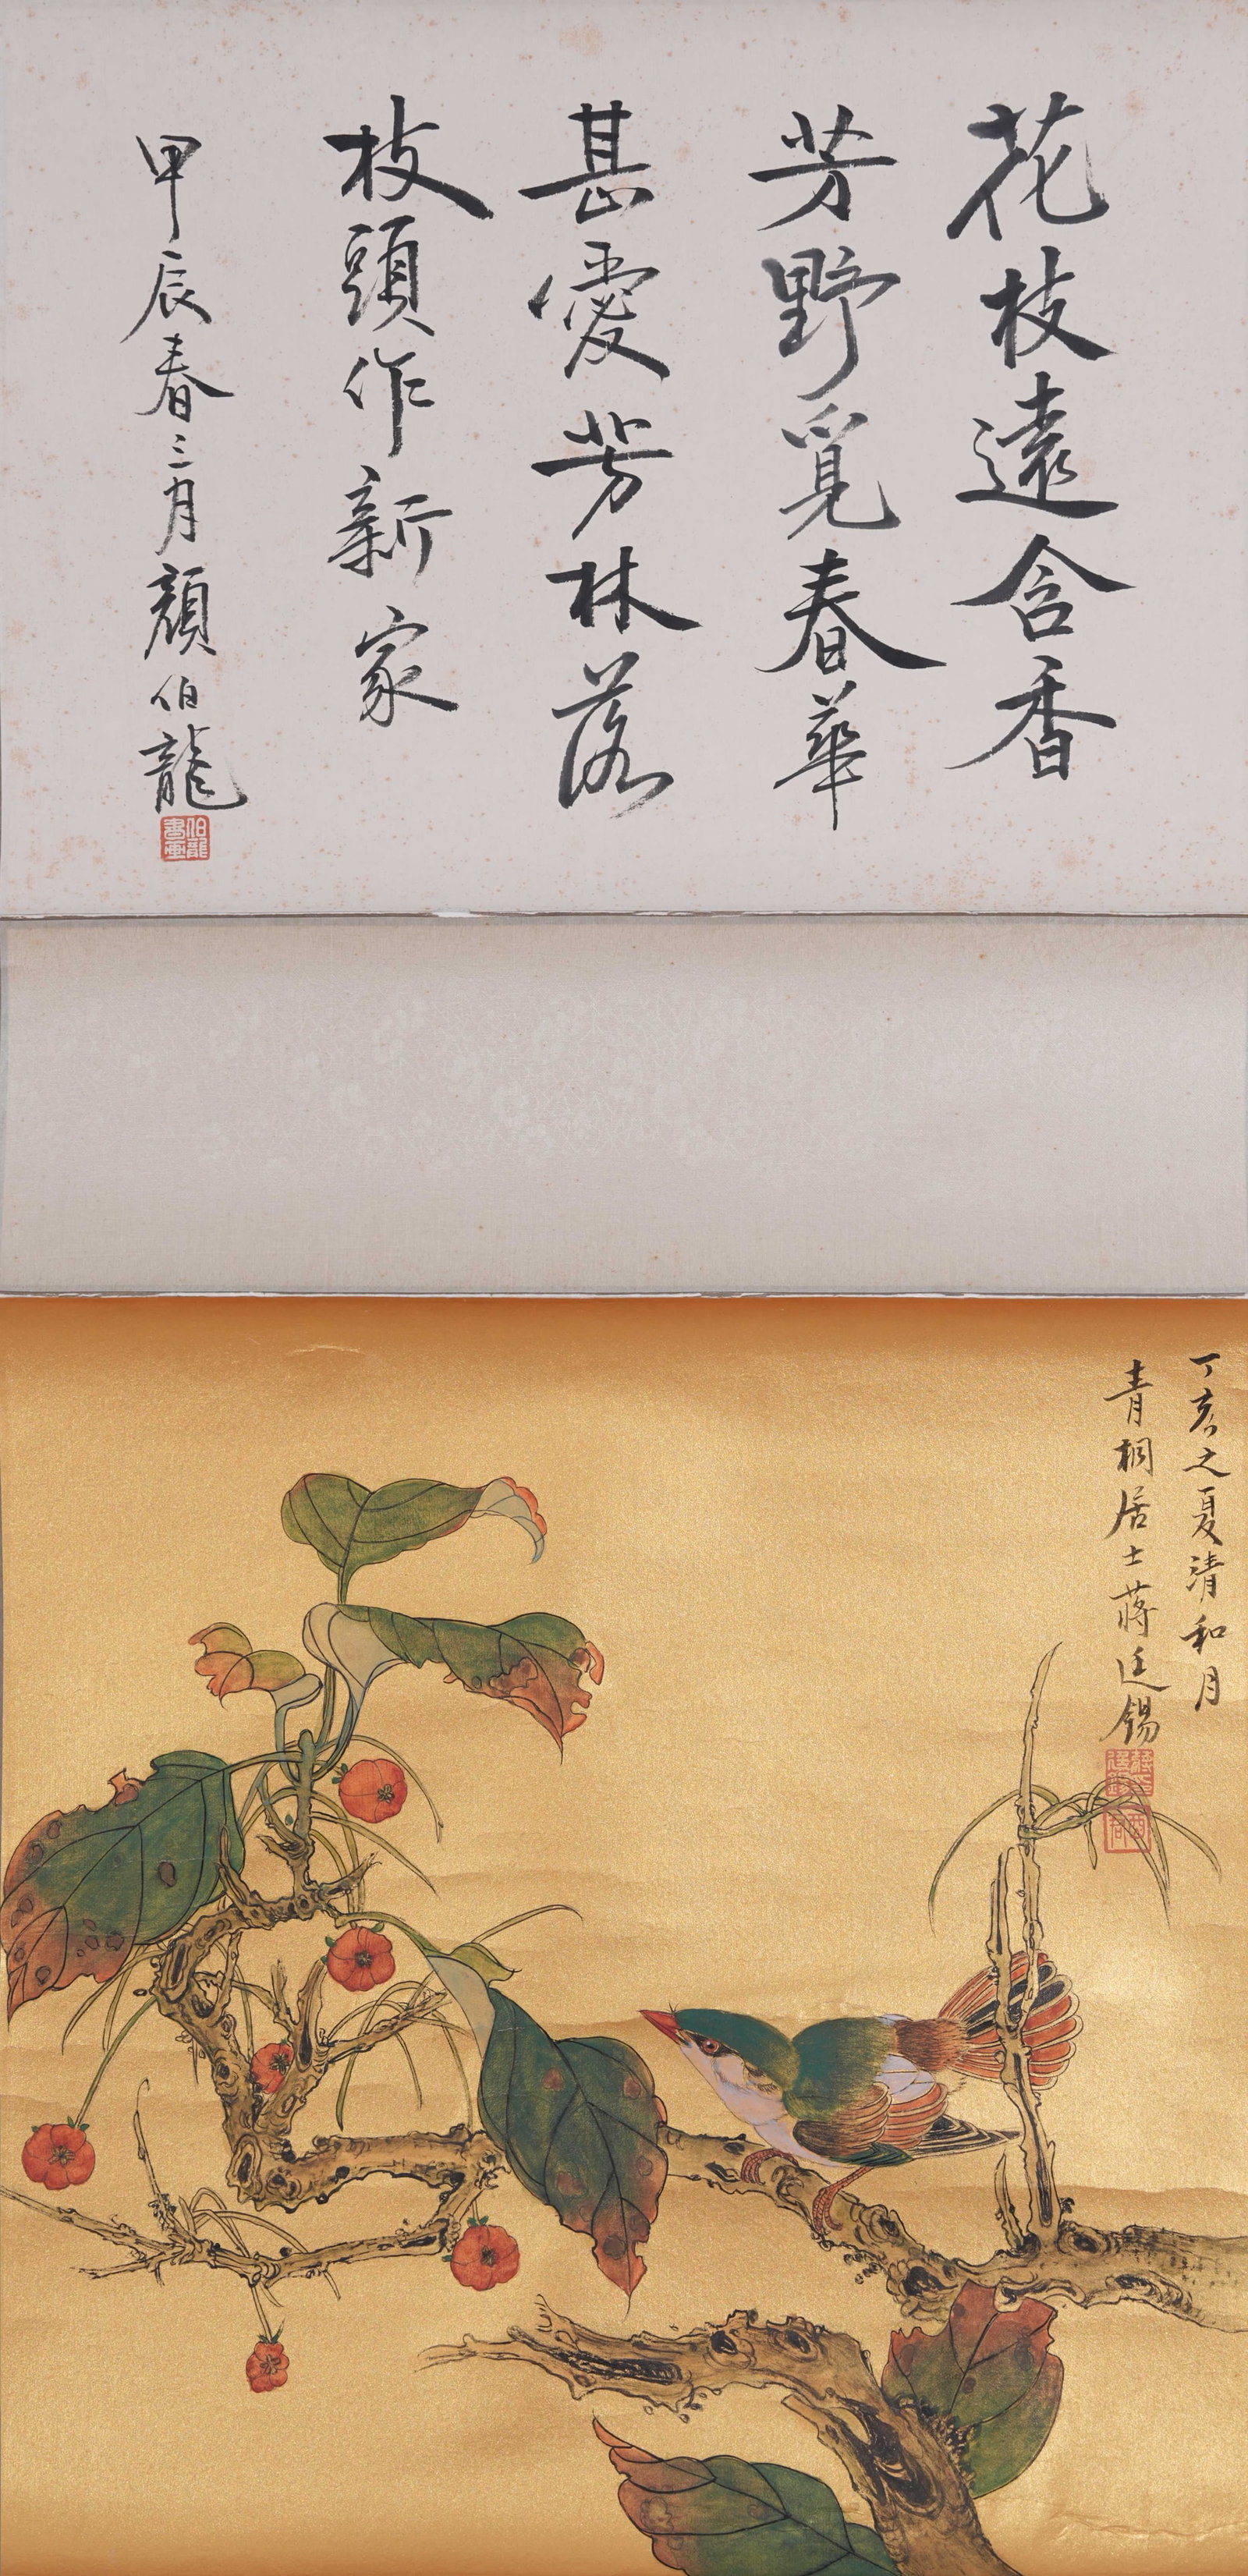 花枝遠含香
芳野覓春華
甚愛芳林落
枝頭作新家
甲辰春三月顏伯龍
伯龍書畫
丁亥之夏清和月
青桐居士蔣廷錫